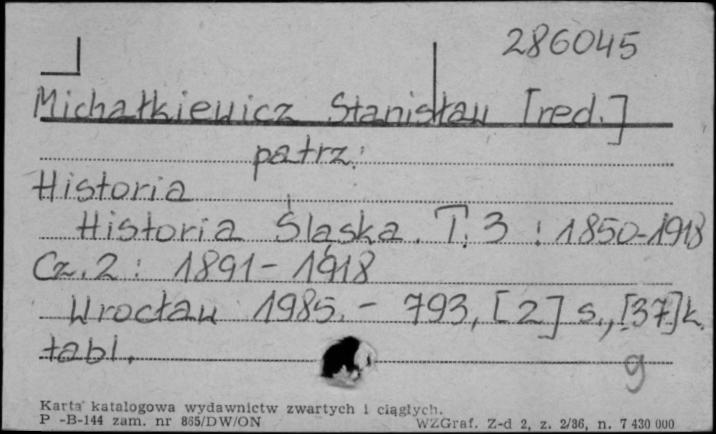 286045
Michałkiewicz Stanisław [red.]
patrz:
Historia
Historia Śląska. T. 3 : 1850-1918
Cz. 2 : 1891-1918
Wrocław 1985. - 793, [2] s., [37] k.
tabl.
g
Karta katalogowa wydawnictw zwartych i ciągłych.
P -B-144 zam. nr 865/DW/ON
WZGraf. Z-d 2, z. 2/86, n. 7 430 000